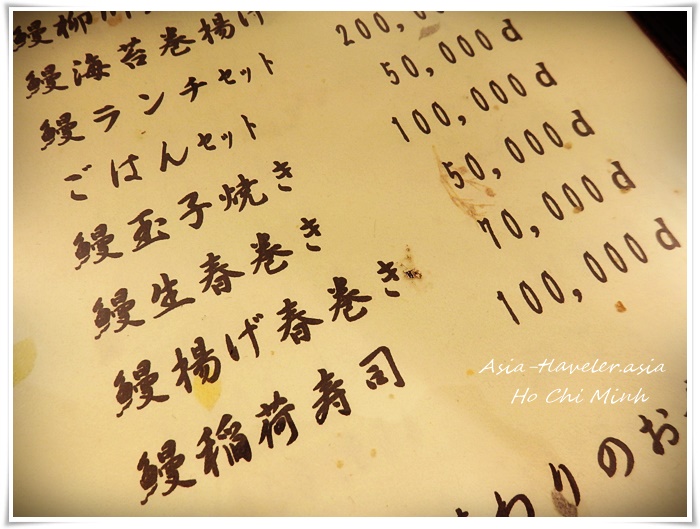 鰻柳川
鰻海苔巻揚げ
鰻ランチセット 200,00
ごはんセット 50,000d
鰻玉子焼き 100,000d
鰻生春巻き 50,000d
鰻揚げ春巻き 70,000d
鰻稲荷寿司 100,000d
わりのお
Asia-Traveler.asia
Ho Chi Minh